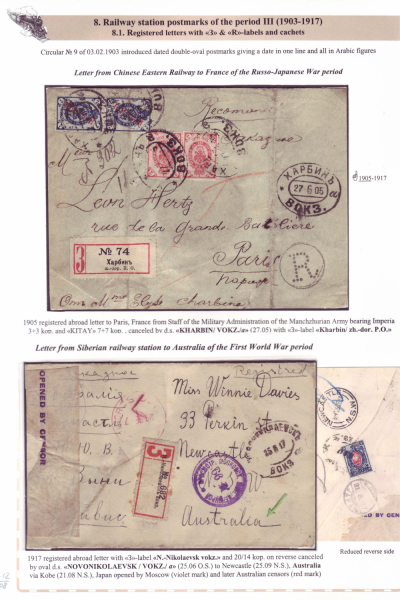 8. Railway station postmarks of the period III (1903-1917)
8.1. Registered letters with «3» & «R»-labels and cachets
Circular № 9 of 03.02.1903 introduced dated double-oval postmarks giving a date in one line and all in Arabic figures
Letter from Chinese Eastern Railway to France of the Russo-Japanese War period
ХАРБИНЪ
27 6 05
ВОКЗ.
a
1905-1917
Leon Hertz
rue de la Grande Batelière
Paris
№ 74
Харбинъ
3
R
1905 registered abroad letter to Paris, France from Staff of the Military Administration of the Manchzhurian Army bearing Imperia
3+3 kop. and «KITAY» 7+7 kop. , canceled by d.s. «KHARBIN/ VOKZ./a» (27.05) with «3»-label «Kharbin/ zh.-dor. P.O.»
Letter from Siberian railway station to Australia of the First World War period
OPENED BY CENSOR
Registered
Miss Winnie Davies
33 Perkin St
Newcastle
Australia
3
№ 682
25 6 17
ВОКЗ.
NEWCASTLE
N.S.W
Reduced reverse side
1917 registered abroad letter with «3»-label «N.-Nikolaevsk vokz.» and 20/14 kop. on reverse canceled
by oval d.s. «NOVONIKOLAEVSK / VOKZ./ a» (25.06 O.S.) to Newcastle (25.09 N.S.), Australia
via Kobe (21.08 N.S.), Japan opened by Moscow (violet mark) and later Australian censors (red mark)